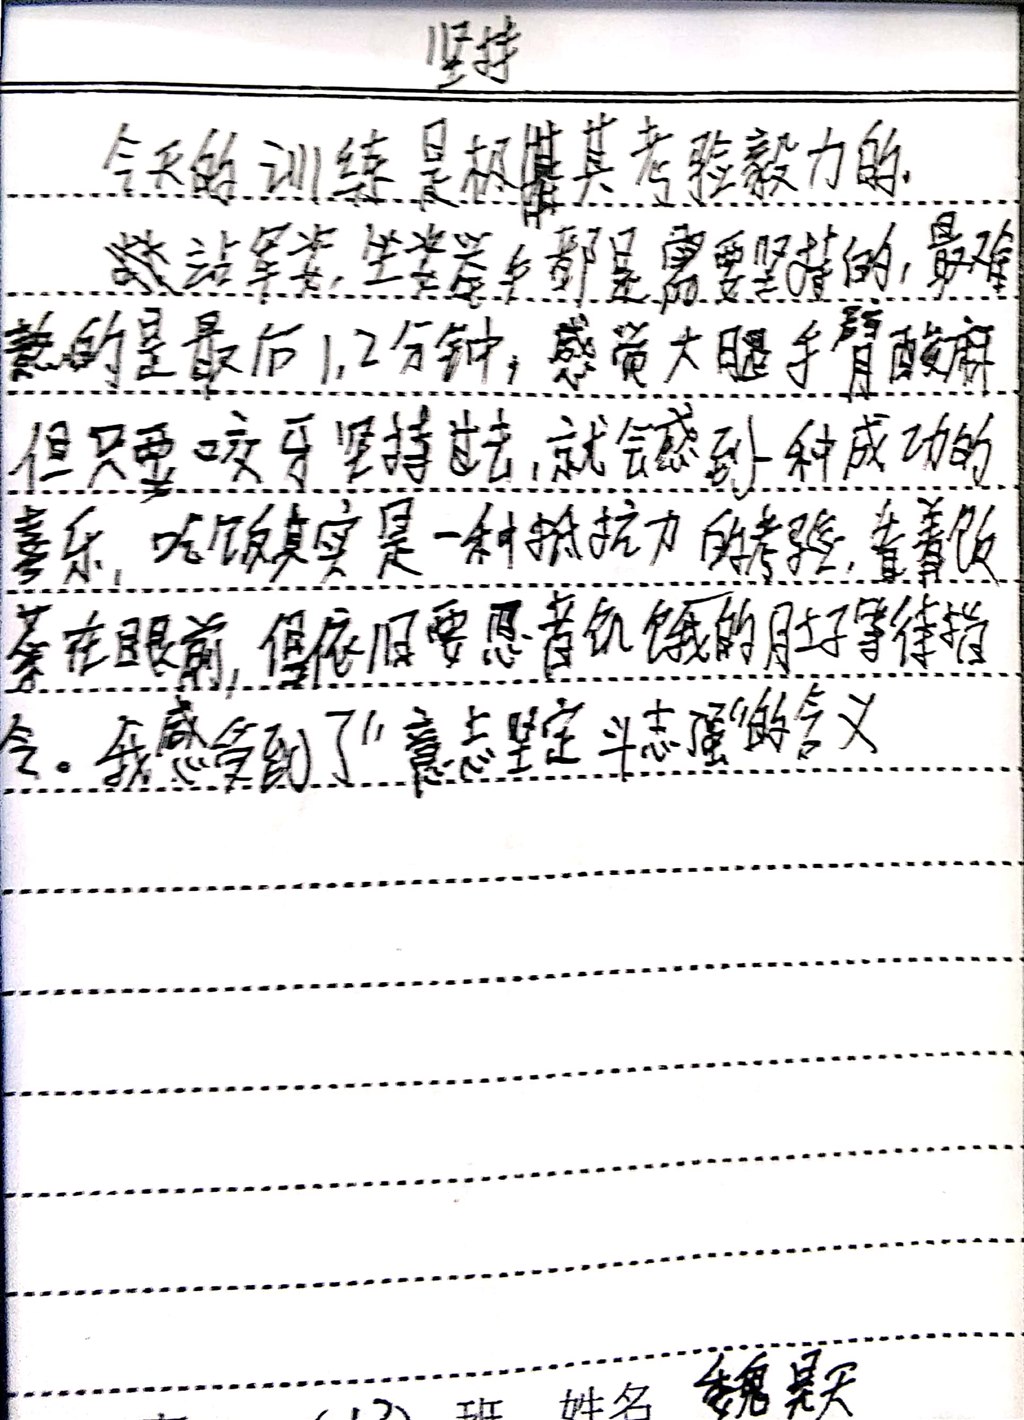 坚持
今天的训练是极其考验毅力的.
站军姿,坐姿都是需要坚持的,最难
熬的是最后1,2分钟,感觉大腿手臂酸麻
但只要咬牙坚持过去,就会感到一种成功的
喜乐,吃饭真实是一种抵抗力的考验,看着饭
菜在眼前,但依旧要忍着饥饿的肚子等待指
令。我感受到了"意志坚定斗志强"的含义
(13) 班 姓名 魏昊天